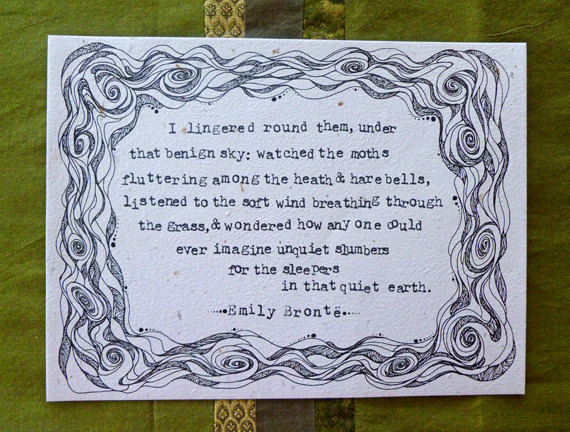 I lingered round them, under
that benign sky; watched the moths
fluttering among the heath & harebells,
listened to the soft wind breathing through
the grass, & wondered how any one could
ever imagine unquiet slumbers
for the sleepers
in that quiet earth.
Emily Brontë